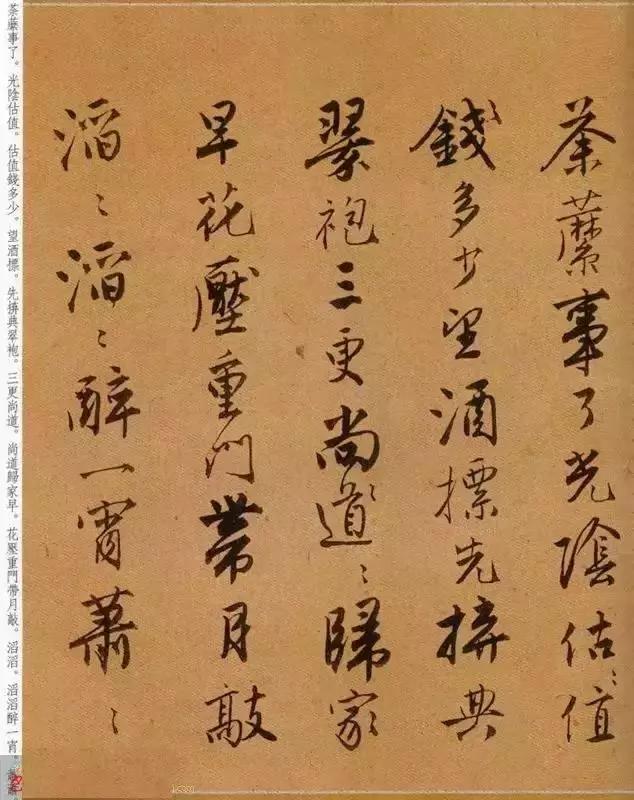 荼蘼事了光陰估〻值
錢〻多少望酒標先拚典
翠袍三更尚道〻〻歸家
早花壓重門帶月敲
滔〻滔〻醉一宵蕭〻
荼蘼事了。光陰估值。估值錢多少。望酒標。先拚典翠袍。三更尚道。尚道歸家早。花壓重門帶月敲。滔滔。滔滔醉一宵。